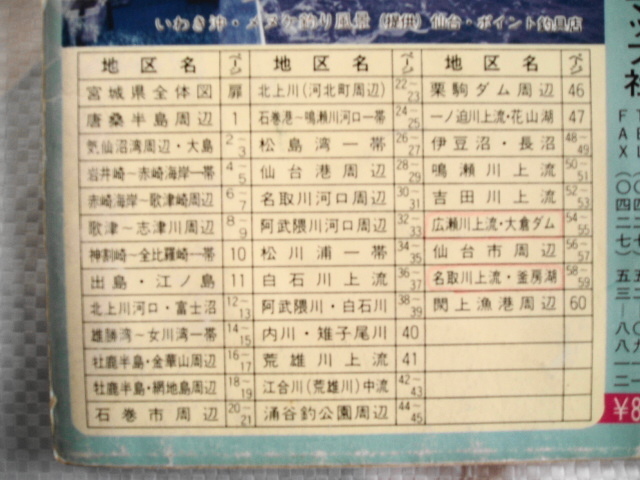 いわき沖・メヌケ釣り風景(提供)仙台・ポイント釣具店
地区名 ページ 地区名 ページ 地区名 ページ
宮城県全体図 扉 北上川(河北町周辺) 22~23 栗駒ダム周辺 46
唐桑半島周辺 1 石巻港~鳴瀬川河口一帯 24~25 一ノ迫川上流・花山湖 47
気仙沼湾周辺・大島 2~3 松島湾一帯 26~27 伊豆沼・長沼 48~49
岩井崎~赤崎海岸一帯 4~5 仙台港周辺 28~29 鳴瀬川上流 50~51
赤崎海岸~歌津崎周辺 6~7 名取川河口周辺 30~31 吉田川上流 52~53
歌津~志津川周辺 8~9 阿武隈川河口周辺 32~33 広瀬川上流・大倉ダム 54~55
神割崎~全比羅崎一帯 10 松川浦一帯 34~35 仙台市周辺 56~57
出島・江ノ島 11 白石川上流 36~37 名取川上流・釜房湖 58~59
北上川河口・富士沼 12~13 阿武隈川・白石川 38~39 閖上漁港周辺 60
雄勝湾~女川湾一帯 14~15 内川・雉子尾川 40
牡鹿半島・金華山周辺 16~17 荒雄川上流 41
牡鹿半島・網地島周辺 18~19 江合川(荒雄川)中流 42~43
石巻市周辺 20~21 涌谷釣公園周辺 44~45
¥8